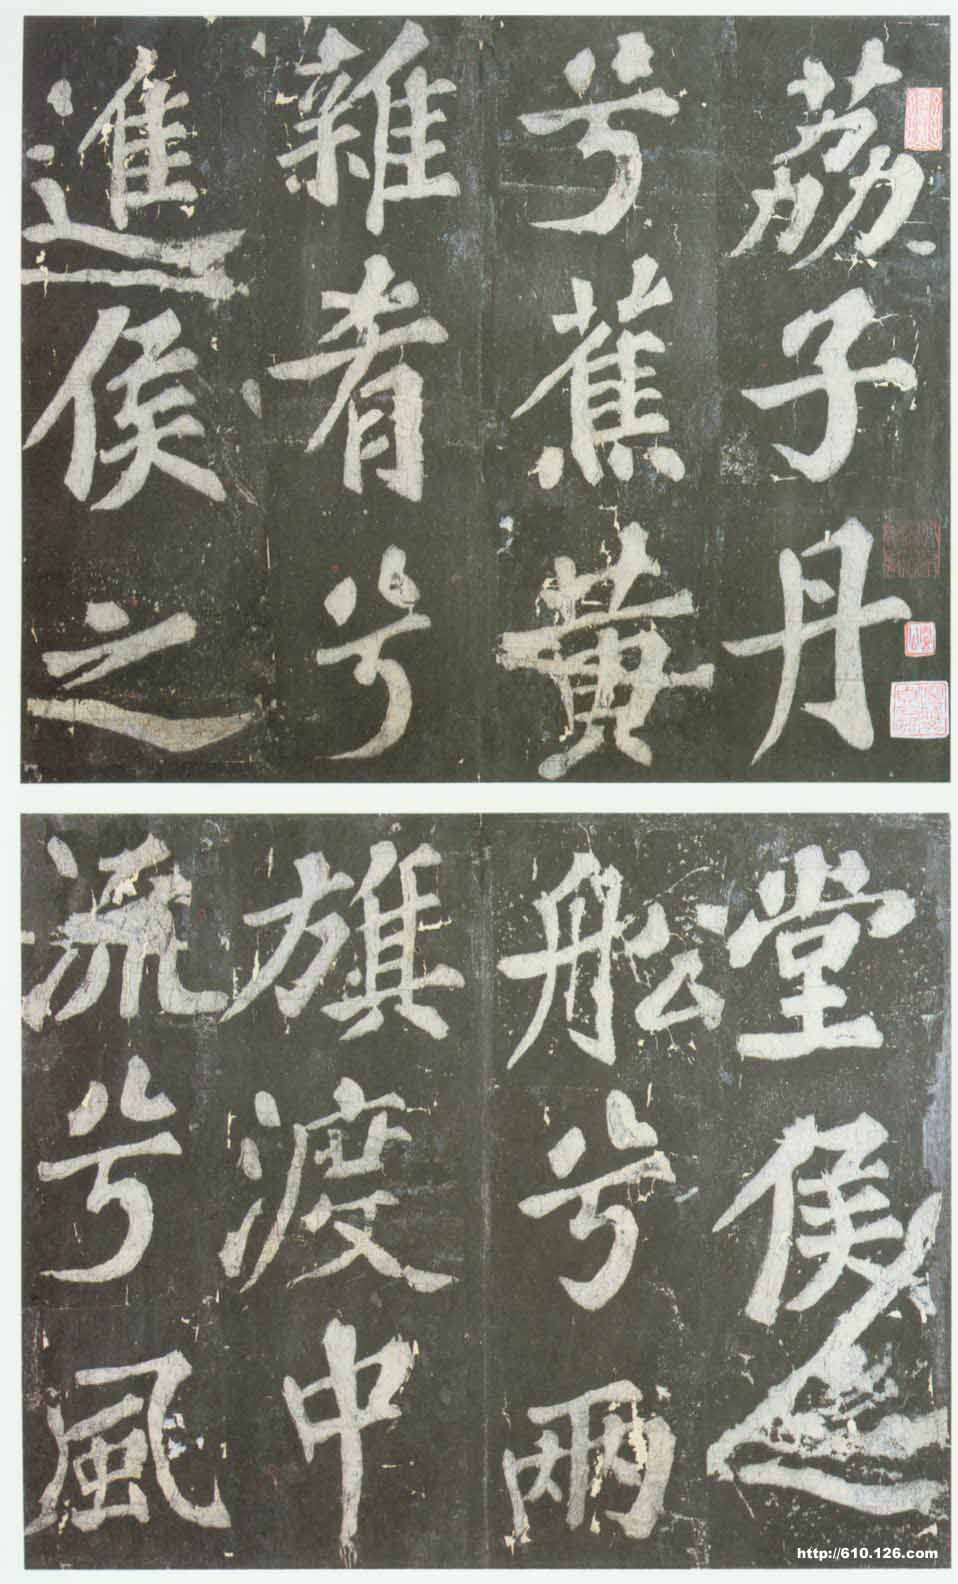 茘子丹
兮蕉黃
雜肴兮
進侯之
堂侯之
舩兮兩
旗渡中
流兮風
http://610.126.com